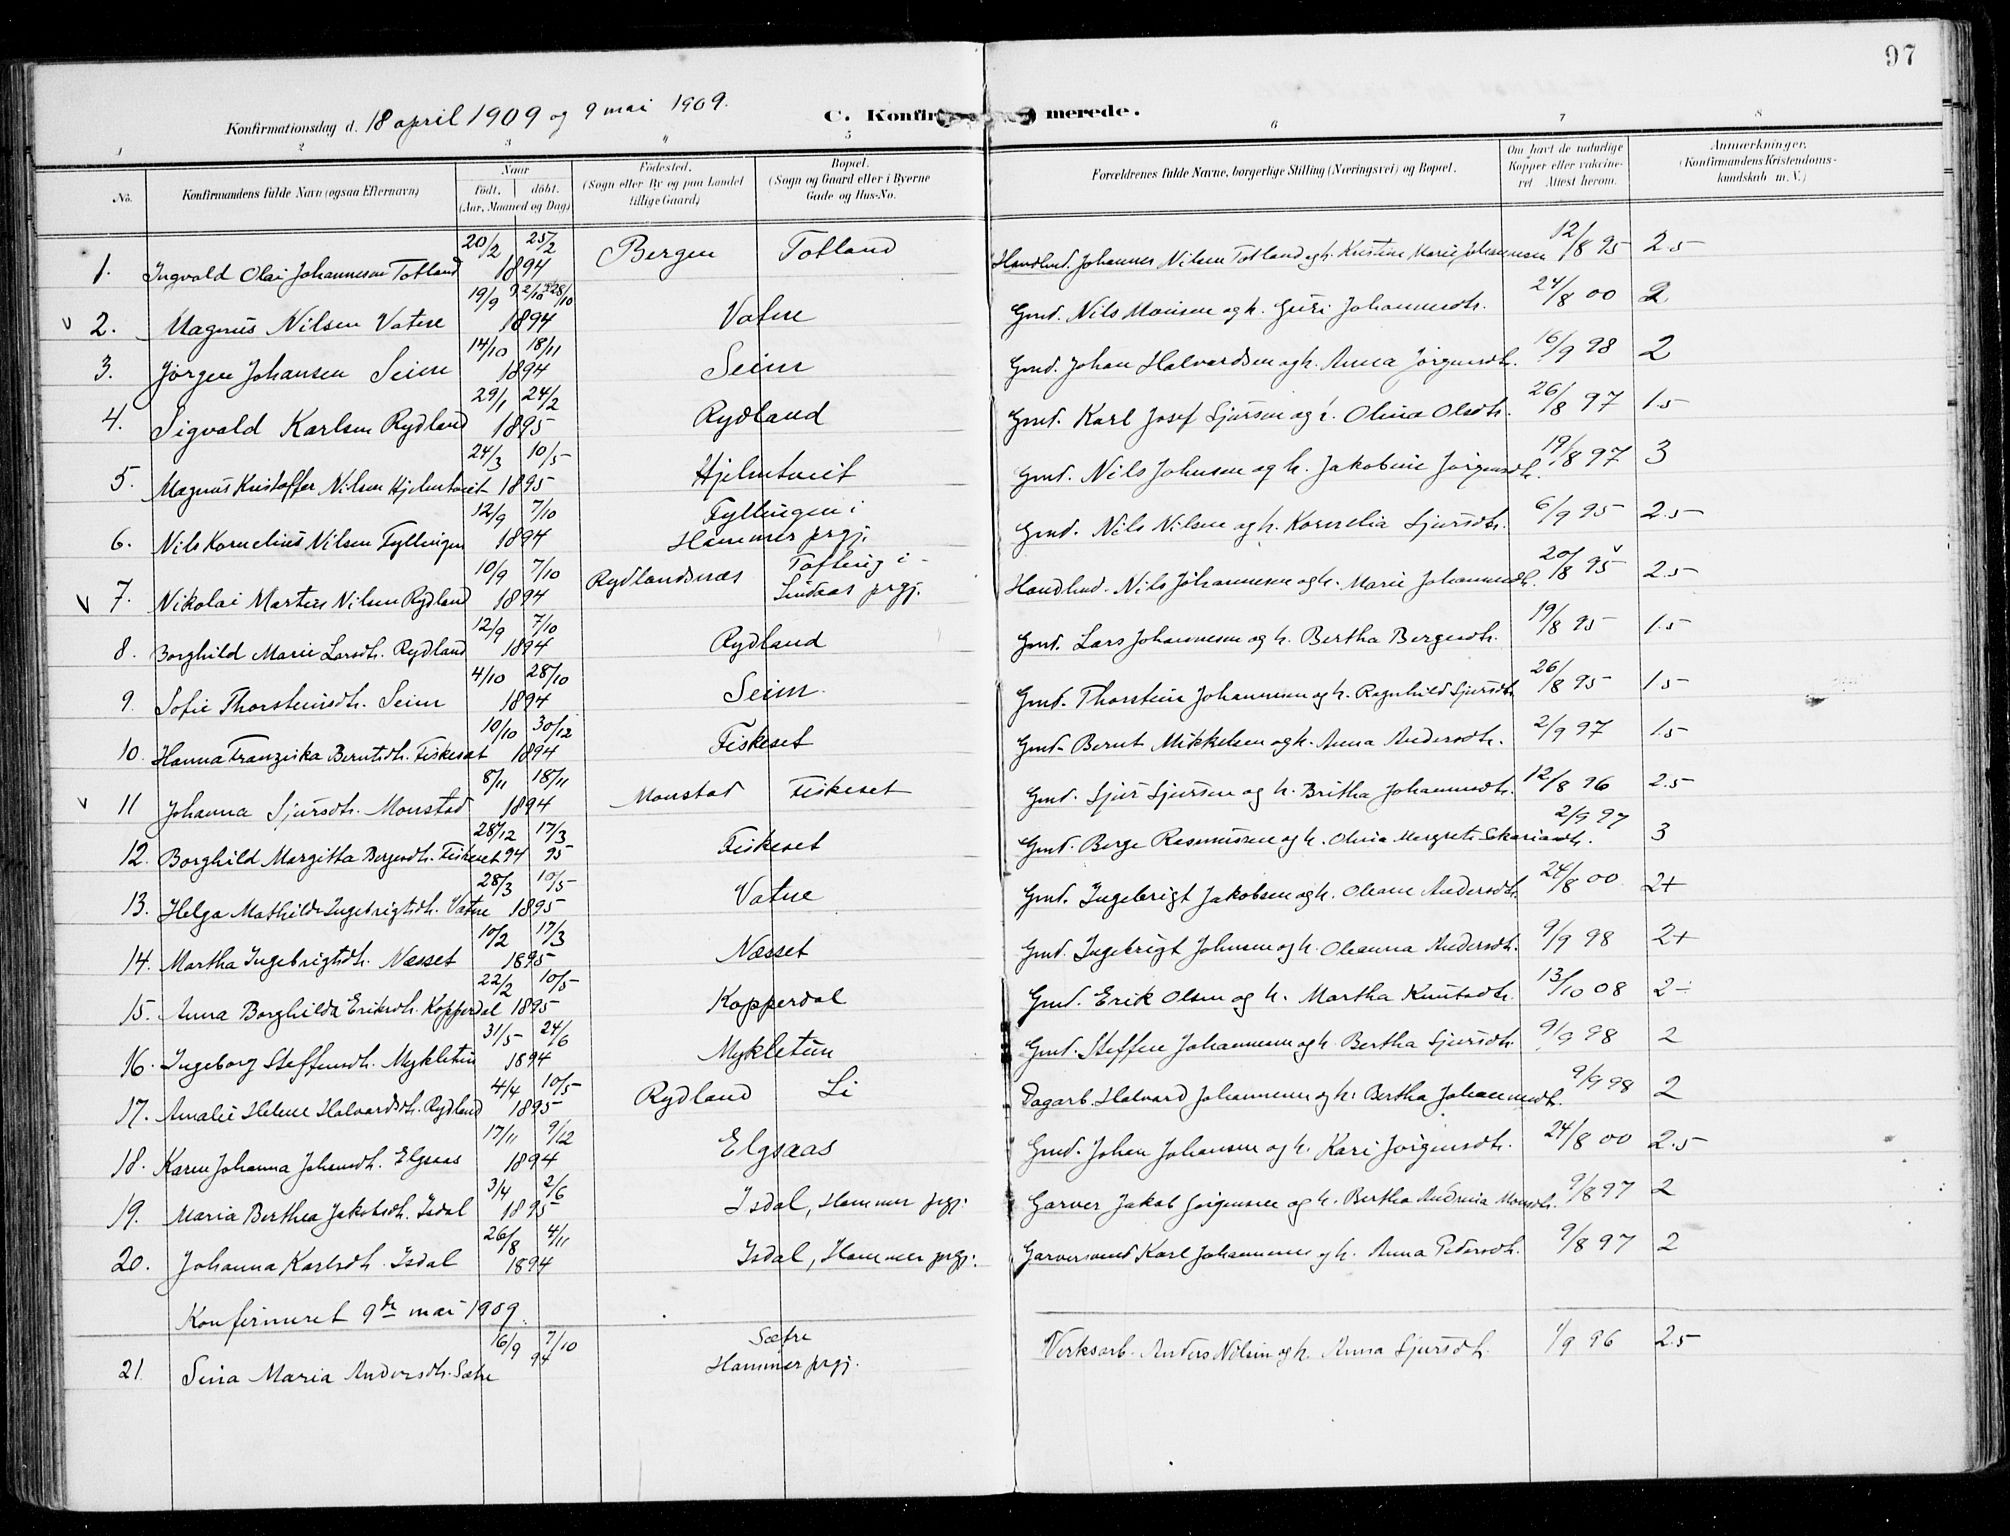 97
Konfirmationsdag d. 18 april 1909 og 9 mai 1909. C. Konfirmerede.
1 2 3 4 5 6 7 8
No. Konfirmandens fulde Navn (ogsaa Efternavn) Naar født, døbt. (Aar, Maaned og Dag) Fødested. (Sogn eller By og paa Landet tillige Gaard) Bopæl. (Sogn og Gaard eller i Byerne Gade og Hus-No. Forældrenes fulde Navne, borgerlige Stilling (Næringsvei) og Bopæl. Om havt de naturlige Kopper eller vaccineret. Attest herom. Anmærkninger. (Konfirmandens Kristendomskundskab m. V.)
1. Ingvald Olai Johannesen Totland 20/2 25/2 1894 Bergen Totland Handlsm. Johannes Nilsen Totland og h. Kristine Marie Johannesen 12/8 95 2.5
v 2. Magnus Nilsen Vatne 19/9 2/10 28/10 1894 Vatne Gmd. Nils Monsen og h. Guri Johannesdtr. 24/8 00 2
3. Jørgen Johansen Seim 14/10 18/11 1894 Seim Gmd. Johan Halvardsen og h. Anna Jørgensdtr. 16/9 98 2
4. Sigvald Karlsen Rydland 29/1 24/2 1895 Rydland Gmd. Karl Josef Sjursen og h. Olina Olsdtr. 26/8 97 1.5
5. Magnus Kristoffer Nilsen Hjelmtveit 24/3 10/5 1895 Hjelmtveit Gmd. Nils Johnsen og h. Jakobine Jørgensdtr. 19/8 97 3
6. Nils Kornelius Nilsen Fyllingen 12/9 7/10 1894 Fyllingen i Hammer prgj. Gmd. Nils Nilsen og h. Kornelia Sjursdtr. 6/9 95 2.5
v 7. Nikolai Martin Nilsen Rydland 10/9 7/10 1894 Rydlandsnæs Tofting i Lindaas prgj. Handlsm. Nils Johannesen og h. Marie Johannesdtr. 20/8 95 2.5
8. Borghild Marie Larsdtr. Rydland 12/9 7/10 1894 Rydland Gmd. Lars Johannesen og h. Bertha Bergesdtr. 19/8 95 1.5
9. Sofie Thorsteinsdtr. Seim 4/10 28/10 1894 Seim Gmd. Thorstein Johannesen og h. Ragnhild Sjursdtr 26/8 95 1.5
10. Hanna Franziska Berntsdtr. Fiskeset 10/10 30/12 1894 Fiskeset Gmd. Bernt Mikkelsen og h. Anna Andersdtr. 2/9 97 1.5
v 11 Johanna Sjursdtr. Monstad 8/11 18/11 1894 Monstad Fiskeset Gmd. Sjur Sjursen og h. Britha Johannesdtr. 12/8 96 2.5
12. Borghild Margitta Bergesdtr. Fiskeset 28/12 94 17/3 95 Fiskeset Gmd. Berge Rasmussen og h. Olina Margrete Sakariasdtr. 2/9 97 3
13. Helga Mathilde Ingebrigtsdtr. Vatne 28/3 10/5 1895 Vatne Gmd. Ingebrigt Jakobsen og h. Oleane Andersdtr. 24/8 00 2+
14. Martha Ingebrigtsdtr. Næsset 10/2 17/3 1895 Næsset Gmd. Ingebrigt Johnsen og h. Oleanna Andersdtr. 9/9 98 2+
15. Anna Borghilda Eriksdtr. Kopperdal 22/2 10/5 1895 Kopperdal Gmd. Erik Olsen og h. Martha Knutsdtr. 13/10 08 2÷
16. Ingeborg Steffensdtr. Mykletun 31/5 24/6 1894 Mykletun Gmd. Steffen Johannesen og h. Bertha Sjursdtr. 9/9 98 2
17. Amalie Helene Halvardsdtr. Rydland 4/4 10/5 1895 Rydland Li Dagarb. Halvard Johannesen og h. Bertha Johannesdtr. 9/9 98 2
18. Karen Johanna Johansdtr. Elgsaas 17/11 9/12 1894 Elgsaas Gmd. Johan Johansen og h. Kari Jørgensdtr. 24/8 00 2.5
19. Maria Berthea Jakobsdtr. Isdal 3/4 2/6 1895 Isdal, Hammer prgj. Garver Jakob Jørgensen og h. Bertha Andrina Monsdtr. 9/8 97 2
20. Johanna Karlsdtr. Isdal 26/8 4/11 1894 Isdal, Hammer prgj. Garversvend Karl Johannesen og h. Anna Pedersdtr. 9/8 97 2
Konfirmeret 9de mai 1909.
21. Sina Maria Andersdtr. Sætre 16/9 7/10 94 Sætre Hammer prgj. Verksarb. Anders Nilsen og h. Anna Sjursdtr. 1/9 96 2.5